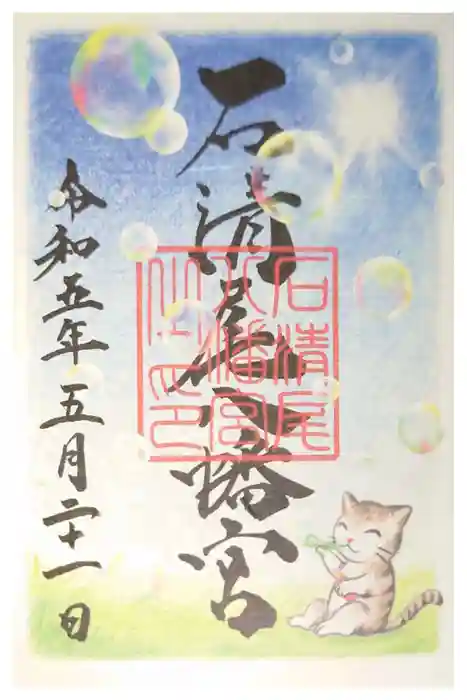 石清尾八幡宮
石清尾
八幡宮
之印
令和五年五月二十一日